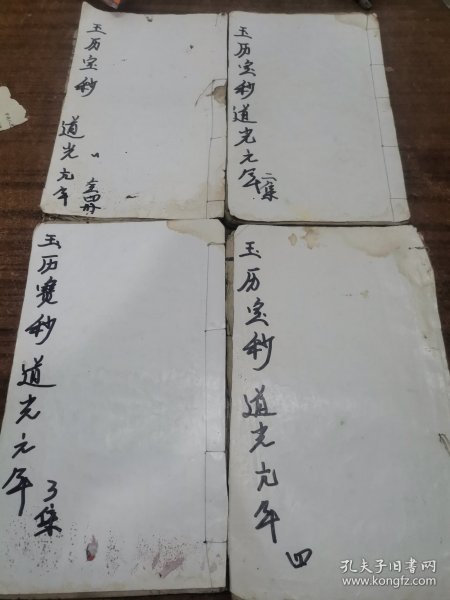 玉历宝秒 道光九年
全四册
玉历宝秒道光元年
二集
玉历宝秒道光元年
3集
玉历宝秒道光九年 四
孔夫子旧书网
www.kongfz.com